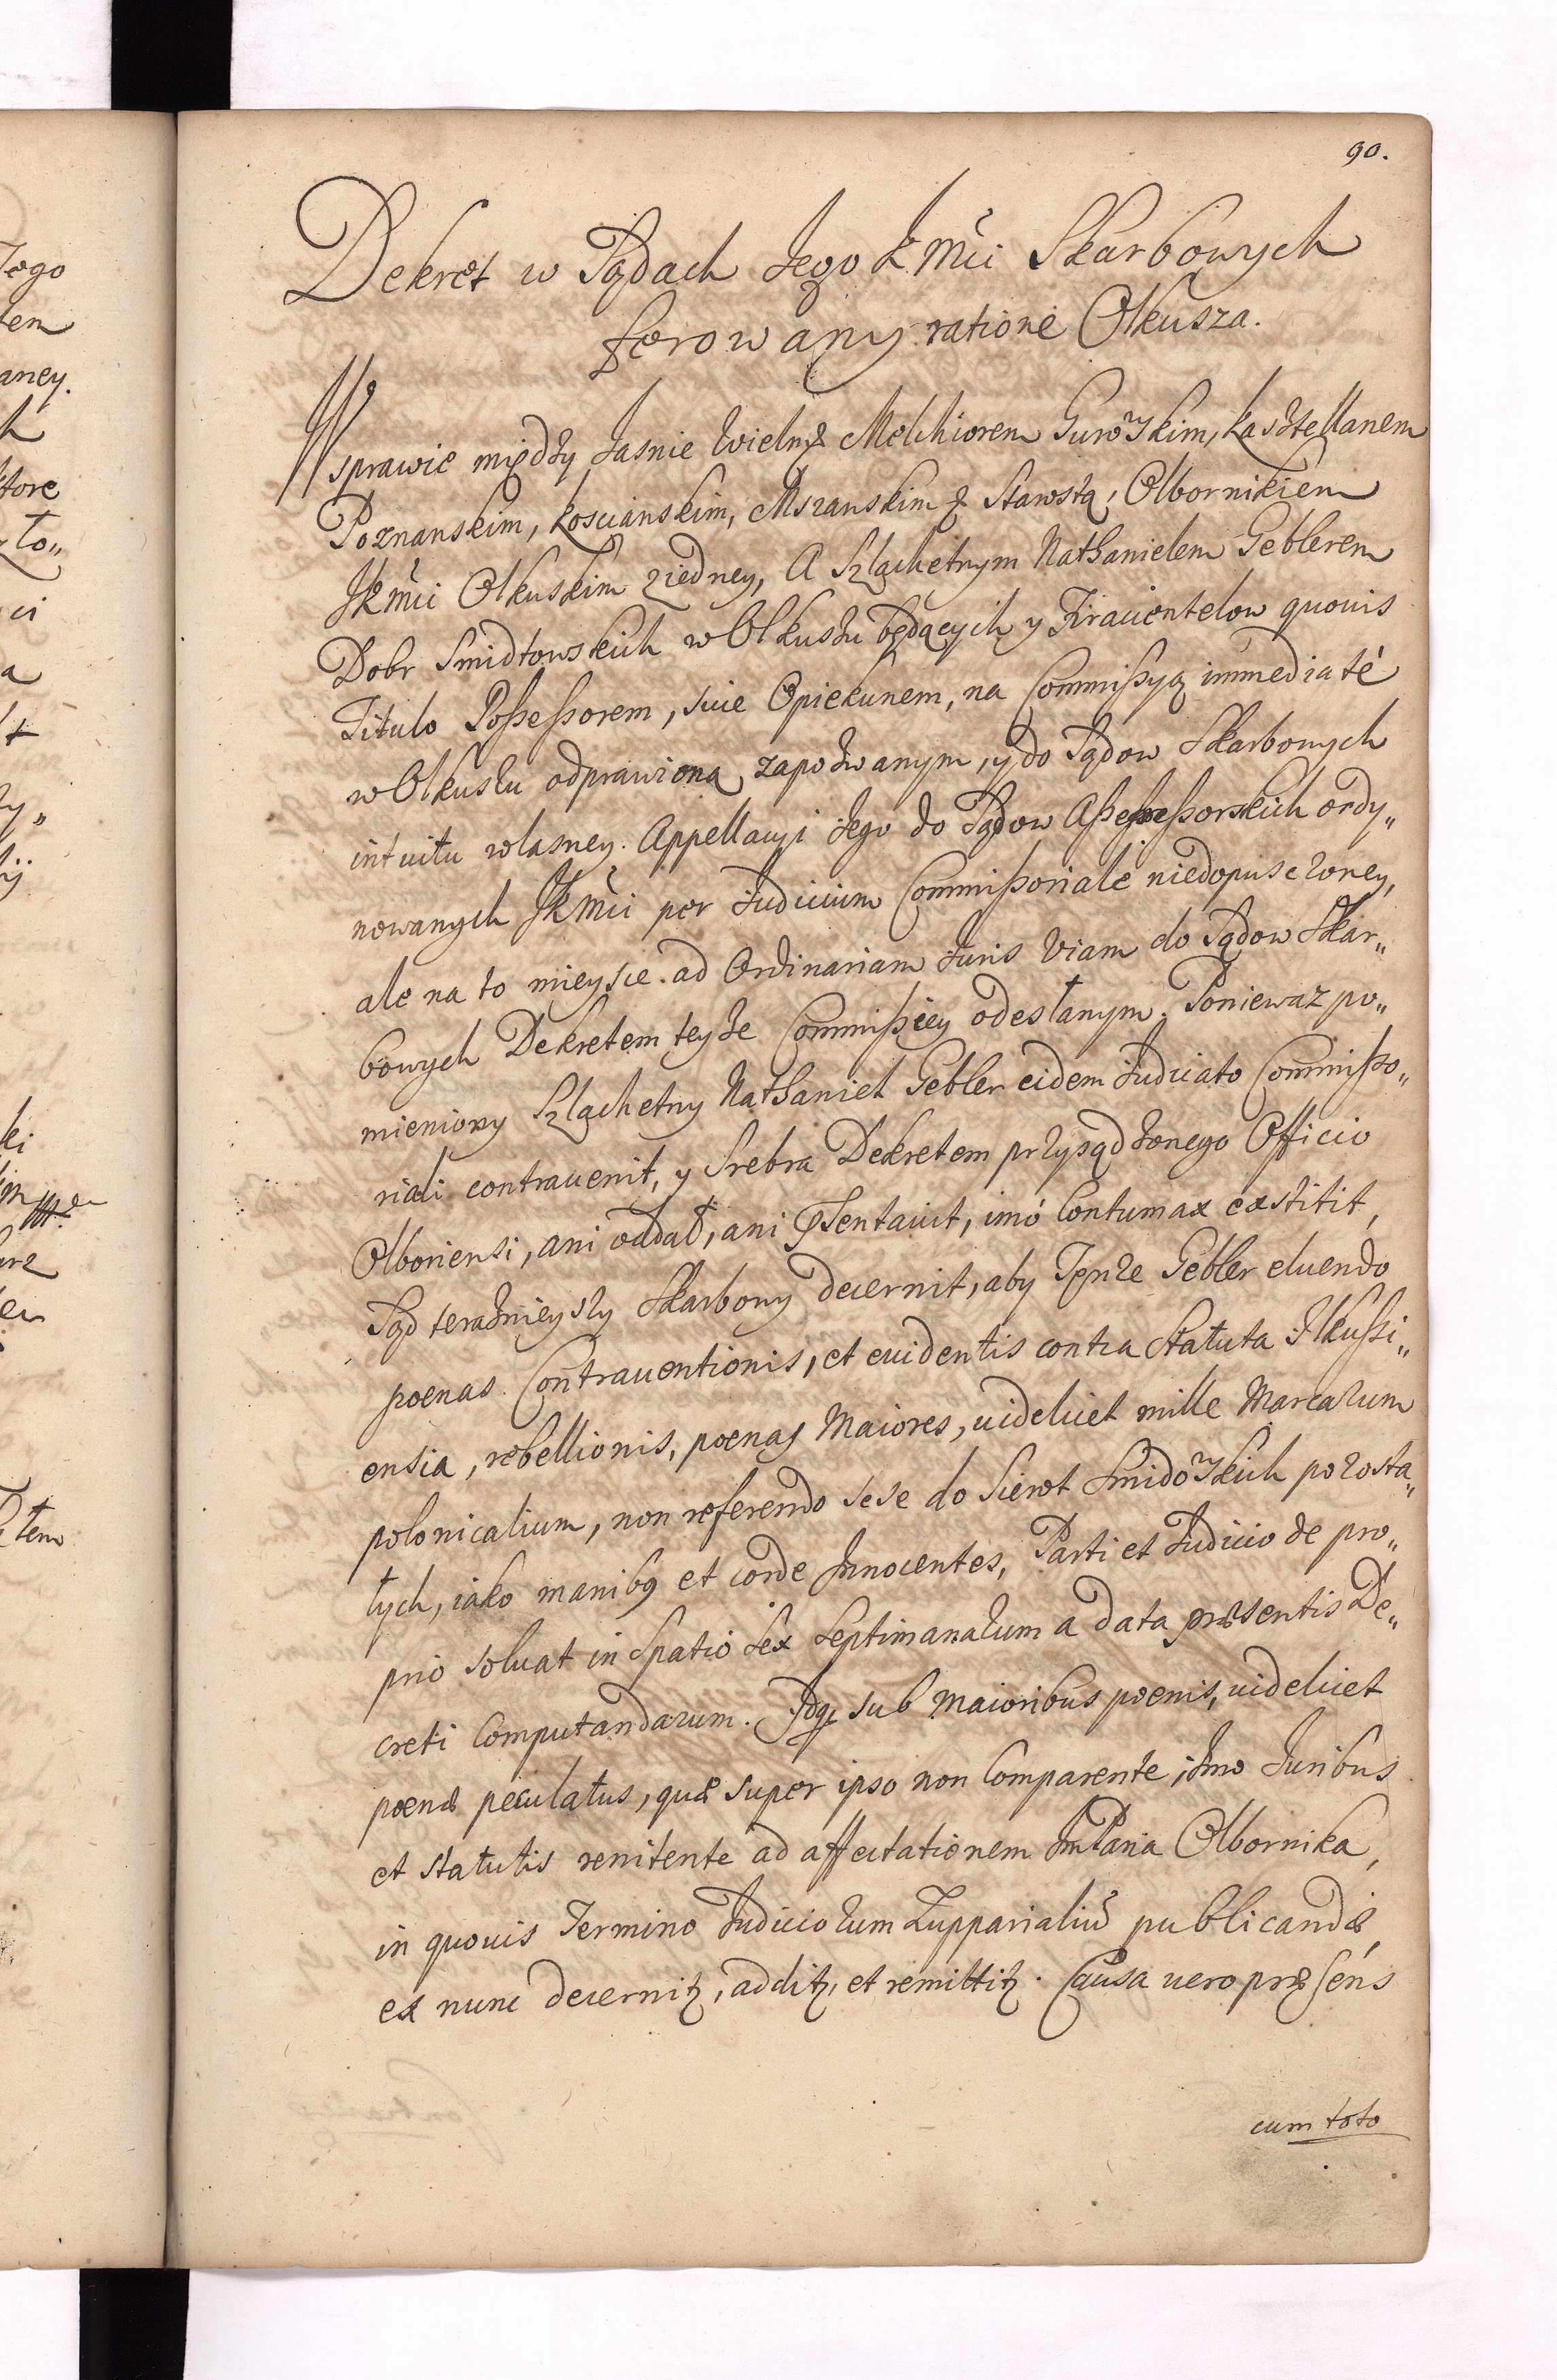 90.
Dekret w Sądach Jego K Mci Skarbowych
ferowany ratione Olkusza.
W sprawie między Jasnie Wielnÿ Melchiorem Gurowskim, kasztellanem
Poznanskim, kosciańskim, Mszanskim & Starostą, Olbornikiem
JKMci Olkuskim ziedney, A Szlachetnym Nathanielem Geblerem
Dobr Smidtowskich w Olkuszu będących y Trauentelow quouis
Titulo Possessorem, siue Opiekunem, na Commissyą immediatè
w Olkuszu odprawioną zapozwanym, y do Sądow Skarbowych
intuitu własney. Appellacyi Jego do Sądow Assessorskich ordy„
nowanych JKMci per Judicium Commissoriale niedopusczoney,
ale na to mieysce ad Ordinariam Juris Viam do Sądow Skar„
bowych Dekretem teyże Commissiey odesłanym. Poniewaz po„
mieniony Szlachetny Nathaniel Gebler eidem Judicato Commisso„
riali contrauenit, y Srebra Dekretem przysądzonego Officio
Olboriensi, ani oddał, ani p̄sentauit, imò Contumax exstitit,
Sąd teraznieyszy Skarbowy decernit, aby Tenze Gebler eluendo
poenas Contrauentionis, et euidentis contra Statuta Ilkussi„
ensia, rebellionis, poenas Maiores, uidelicet mille Marcarum
polonicalium, non referendo sese do Sierot Smidowskich pozosta„
łych, iako manibq et corde Innocentes, Parti et Judicio de pro„
prio soluat in Spatio sex Septimanarum a data præsentis De„
creti Computandarum. Idq sub maioribus poenis, uidelicet
poenæ peculatus, quæ super ipso non Comparente, imo Juribus
et statutis renitente ad affectationem JmPana Olbornika,
in quouis Termino Judiciorum Zupparialiū publicandæ,
ex nunc decernitz, additz, et remittitz. Causa uero præsens
cum toto